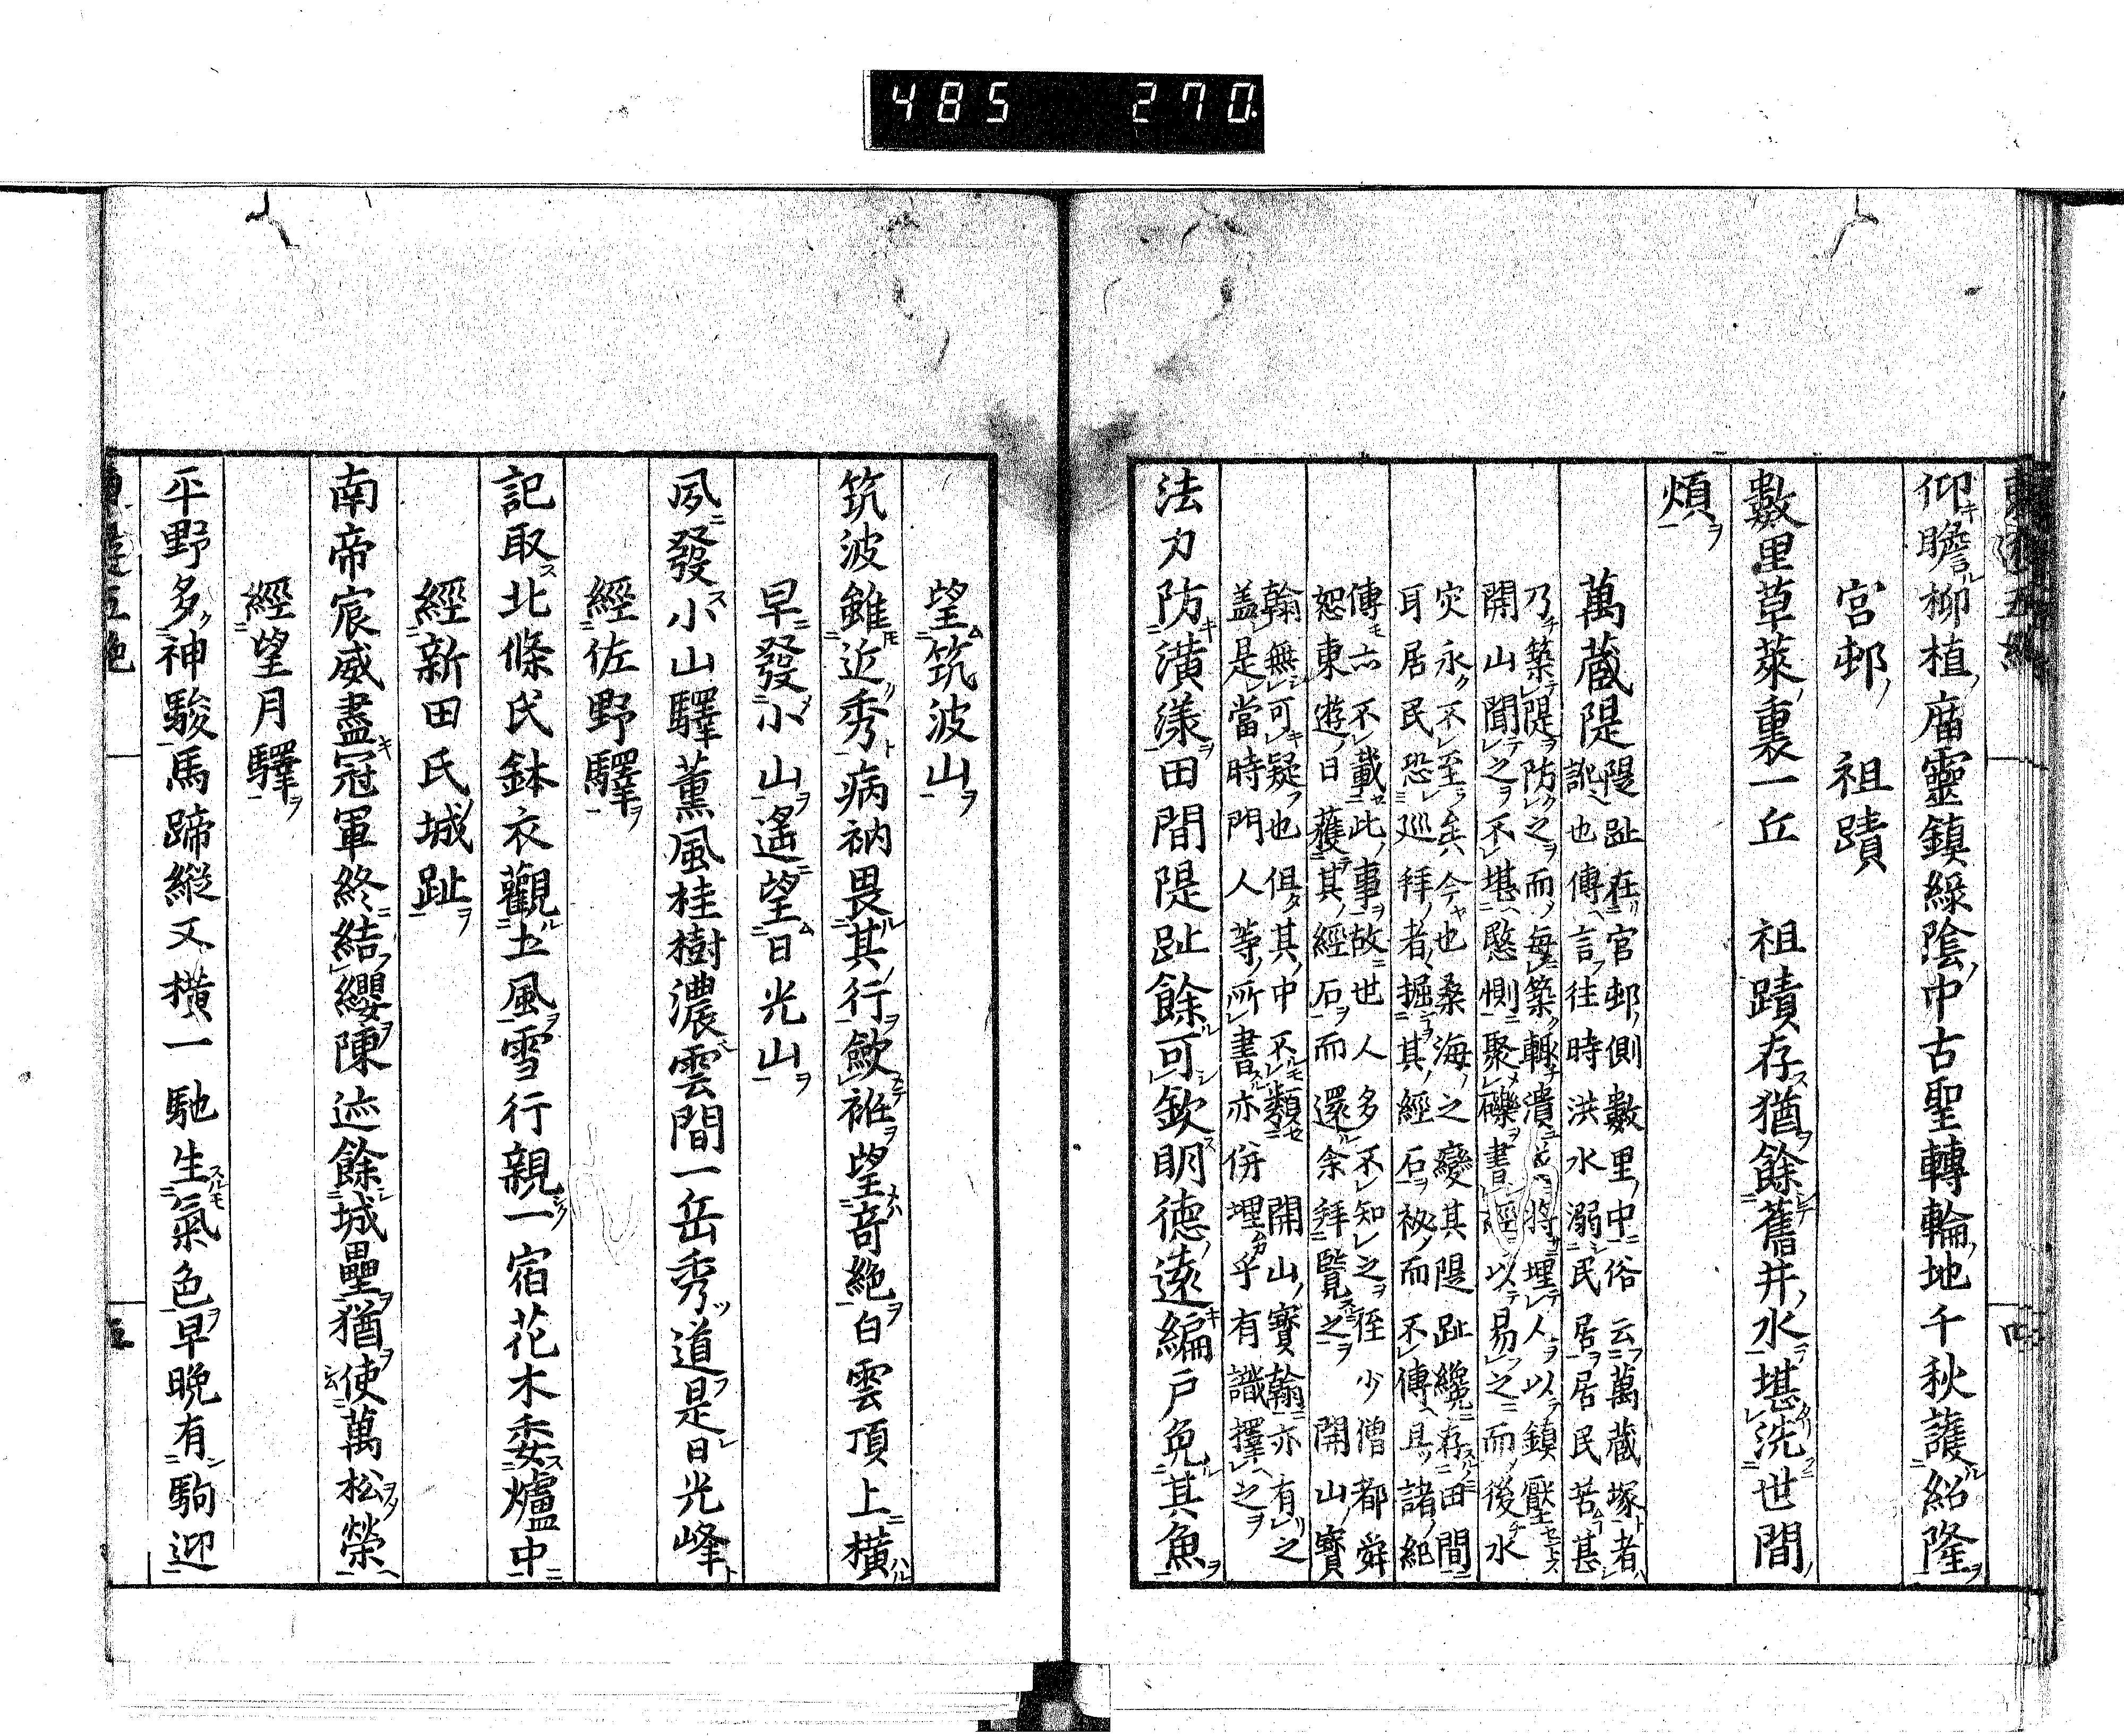 485 270
仰瞻柳植庿靈鎮綠陰中古聖轉輪地千秋護紹隆
宮邨祖蹟
數里草萊裏一丘祖蹟存猶餘舊井水堪洗世間
煩
萬蔵隄隄趾在官邨側數里中俗云萬蔵塚者
訛也傳言往時洪水溺民居居民苦甚
乃築隄防之而每築輙潰將埋人以鎮壓
開山聞之不堪愍惻聚礫書經以易之而後水
灾永不至矣今也桑海之變其隄趾纔存田間
耳居民恐巡拜者掘其經石袐而不傳且諸紀
傳亦不載此事故世人多不知之侄少僧都舜
恕東遊日獲其經石而還余拜覽之開山寳
翰無可疑也俱其中不類開山寳翰亦有之
盖是當時門人等所書亦併埋乎有識擇之
法力防潢漾田間隄趾餘可欽明德遠編戸免其魚
望筑波山
筑波雖近秀病衲畏其行斂袵望奇絶白雲頂上橫
早發小山遙望日光山
夙發小山驛薰風桂樹濃雲間一岳秀道是日光峰
經佐野驛
記取北條氏鉢衣觀土風雪行親一宿花木委爐中
經新田氏城趾
南帝宸威盡冠軍終結纓陳迹餘城壘猶使萬松榮
經望月驛
平野多神駿馬蹄縱又橫一馳生氣色早晚有駒迎